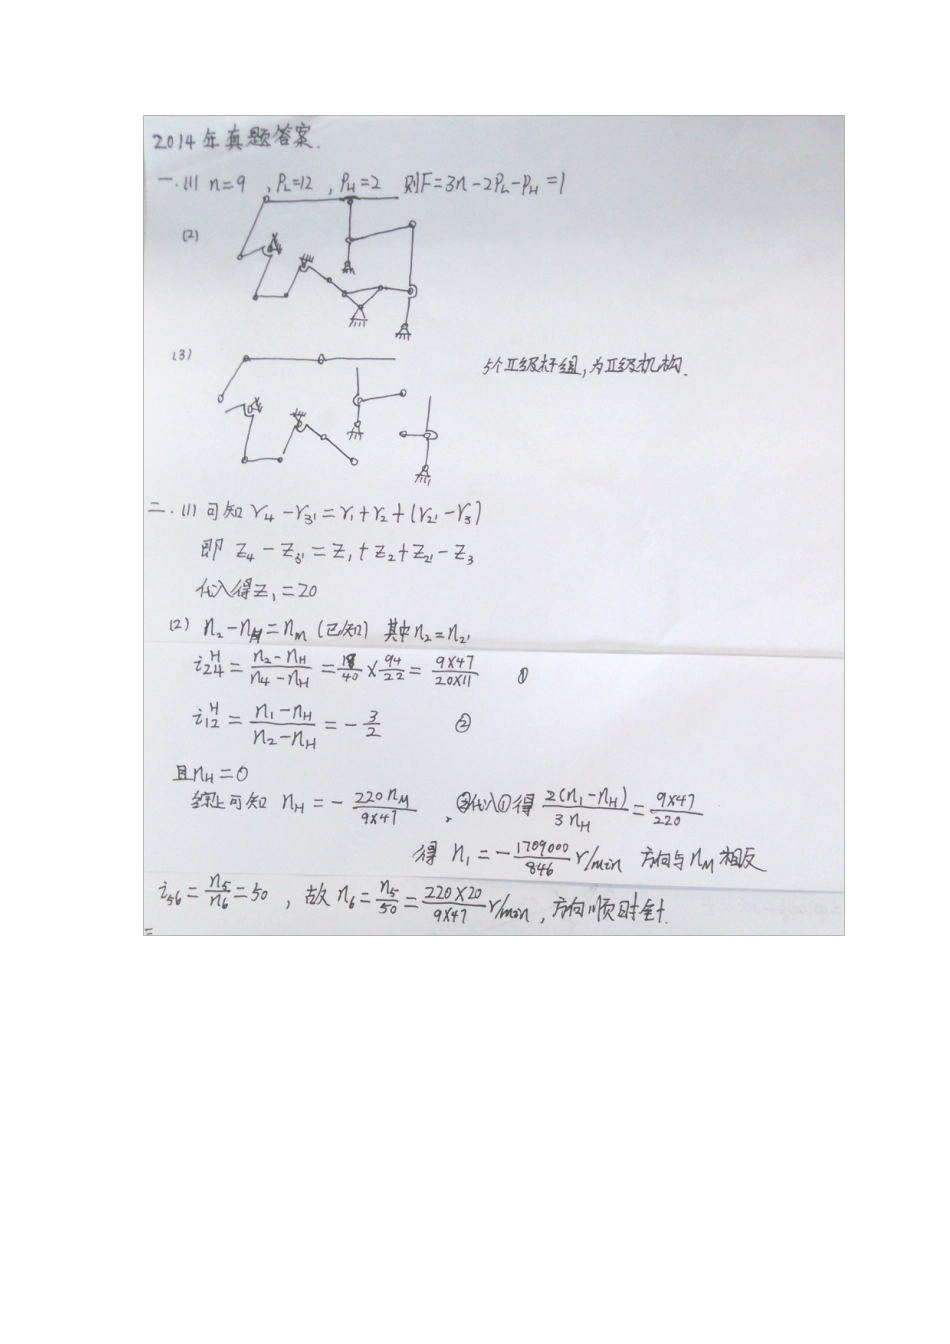 2014年真题答案.
一.(1) n=9 , PL=12 , PH=2 则F=3n-2PL-PH=1
(2)
(3)
5个Ⅱ级杆组,为Ⅱ级机构.
二.(1) 可知 r4-r3'=r1+r2+(r2'-r3)
即 Z4-Z3'=Z1+Z2+Z2'-Z3
代入得Z1=20
(2) n2-nH=nm (已知) 其中n2=n2'
i24^H = (n2-nH)/(n4-nH) = 18/40 × 94/22 = (9×47)/(20×11) ①
i12^H = (n1-nH)/(n2-nH) = -3/2 ②
且nH=0
综上可知 nH = - 220nM/(9×47) , ②代入①得 2(n1-nH)/(3nH) = (9×47)/220
得 n1 = - 1709000/846 r/min 方向与nM相反
i56 = n5/n6 = 50 , 故 n6 = n5/50 = (220×20)/(9×47) r/min , 方向顺时针.